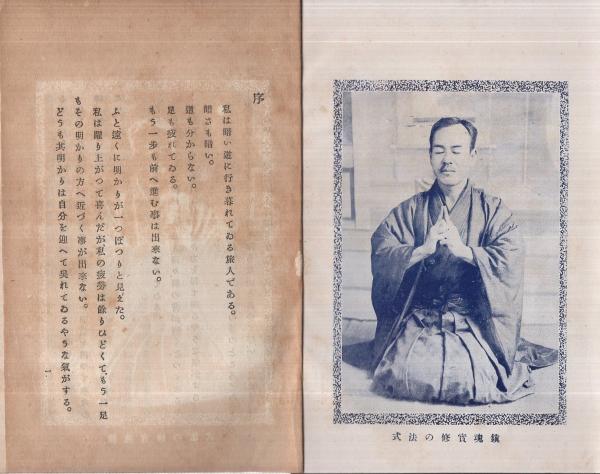 序
私は暗い道に行き暮れてゐる旅人である。
暗さも暗い。
道も分からない。
足も疲れてゐる。
もう一歩も前へ進む事は出來ない。
ふと遠くに明かりが一つぽつりと見えた。
私は躍り上がつて喜んだが私の疲勞は餘りひどくて、もう一足
もその明かりの方へ近づく事が出來ない。
どうも其明かりは自分を迎へて呉れてゐるやうな氣がする。
1
鎭魂實修の法式